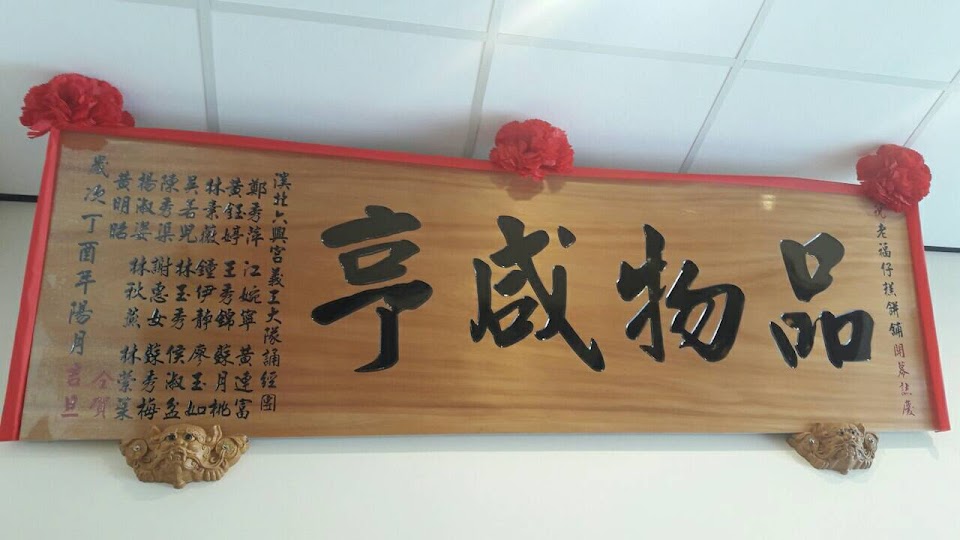 老福仔糕餅舖開幕誌慶
品物咸亨
溪北六興宮義工大隊誦經團
鄭秀萍 江婉寧 黃連富
黃鈺婷 王秀錦 蘇月桃
林景薇 鍾伊靜 廖玉如
吳 兒 林玉秀 侯淑盆
陳秀渠 謝惠女 蘇秀梅
楊淑姿 林秋燕 林榮葉
黃明皓
仝賀
歲次丁酉年陽月吉旦